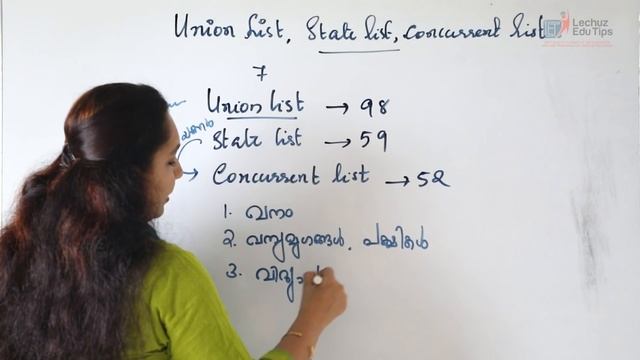 Union List, State list, Concurrent list
Lechuz
Edu Tips
7
Union list → 98
State list → 59
Concurrent list → 52
1. വനം
2. വന്യമൃഗങ്ങൾ, പക്ഷികൾ
3.